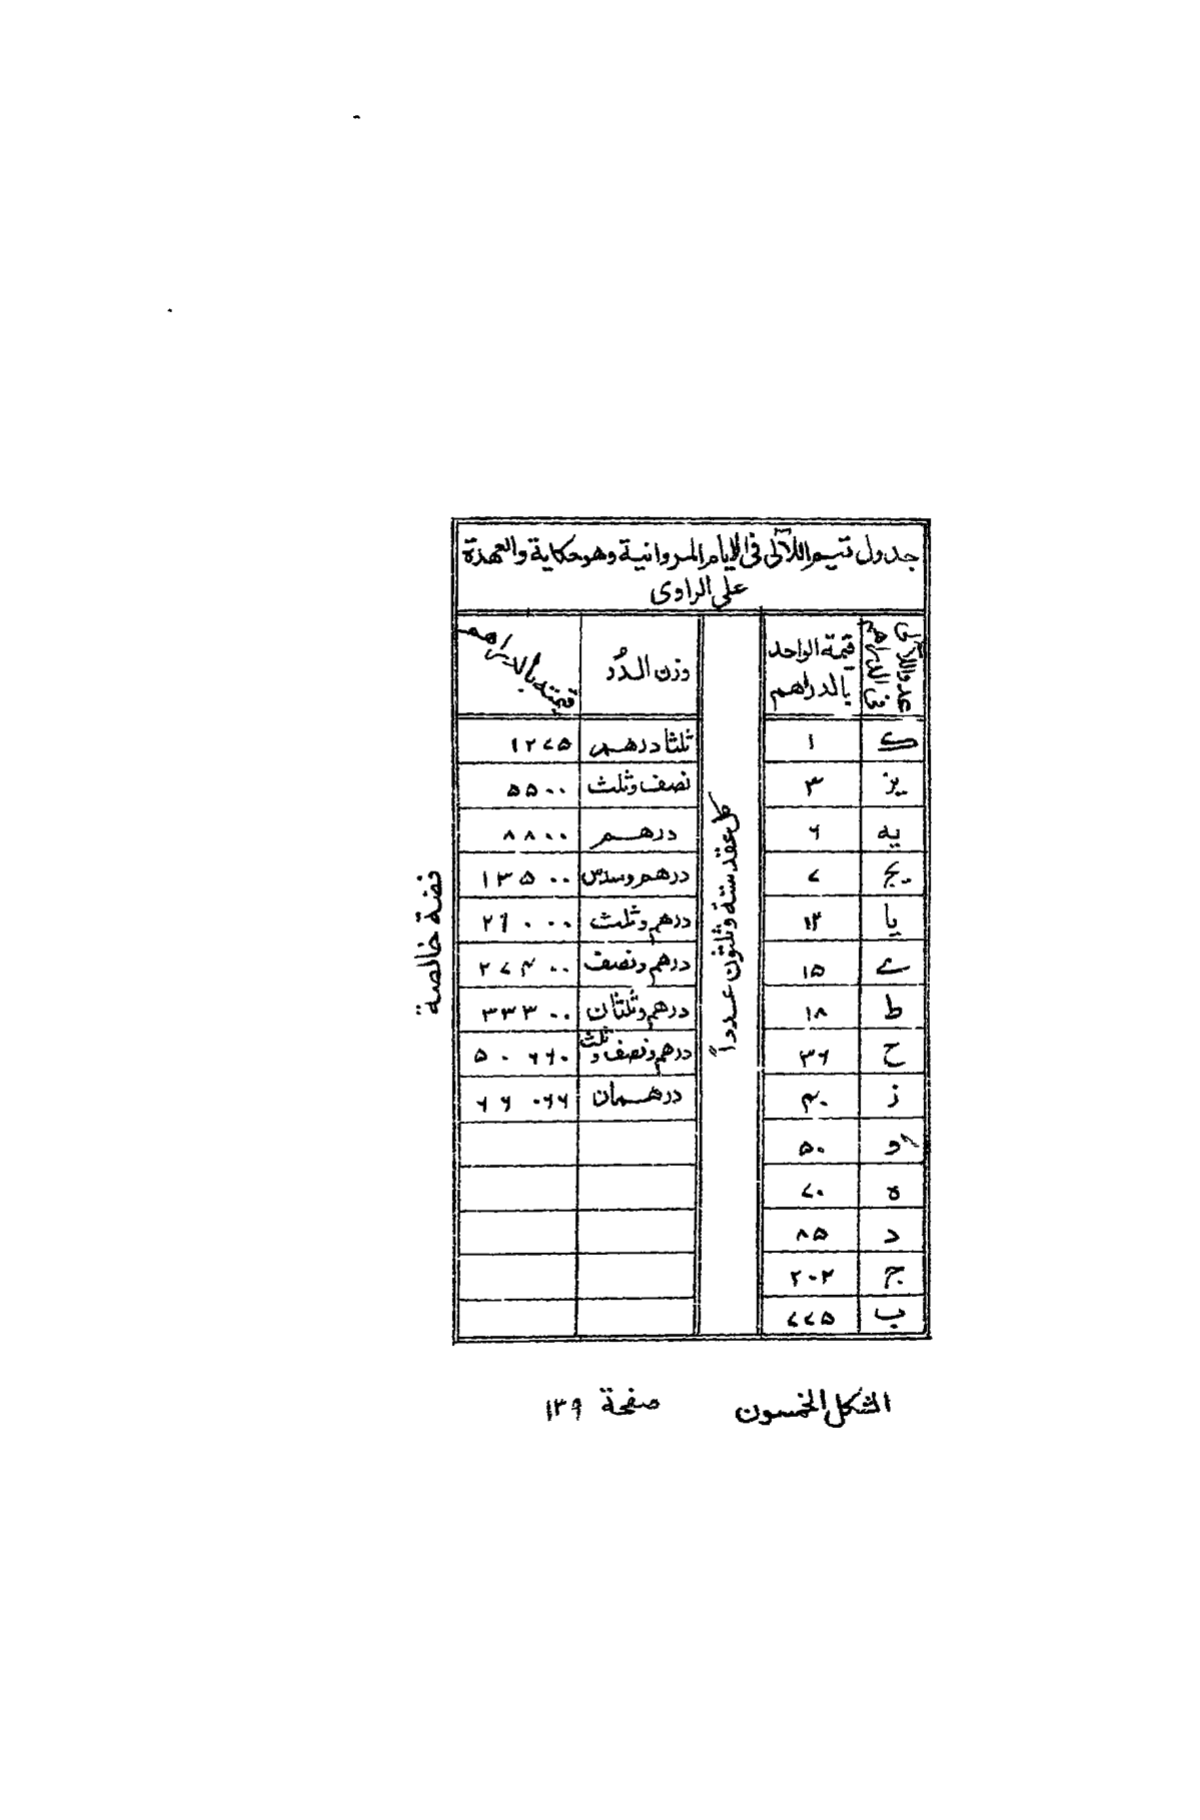 جدول قيم اللآلى فى الايام المروانية وهو حكاية والعهدة
على الراوى
عدد اللآلى فى الدراهم | قيمة الواحد بالدراهم | كل عقد ستة وثلثون عدداً | وزن الدُر | قيمته بالدراهم
ك | ١ | ثلثا درهم | ١٢٧٥
يز | ٣ | نصف وثلث | ٥٥٠٠
يه | ٦ | درهم | ٨٨٠٠
يج | ٧ | درهم وسدس | ١٣٥٠٠
يا | ١٢ | درهم وثلث | ٢٦٠٠٠
ے | ١٥ | درهم ونصف | ٢٧٤٠٠
ط | ١٨ | درهم وثلثان | ٣٣٣٠٠
ح | ٣٦ | درهم ونصف وثلث | ٥٠٦٦٠
ز | ٤٠ | درهمان | ٦٦٠٦٦
و | ٥٠
ه | ٧٠
د | ٨٥
ج | ٢٠٢
ب | ٧٧٥
فضة خالصة
الشكل الخمسون صفحة ١٣٩